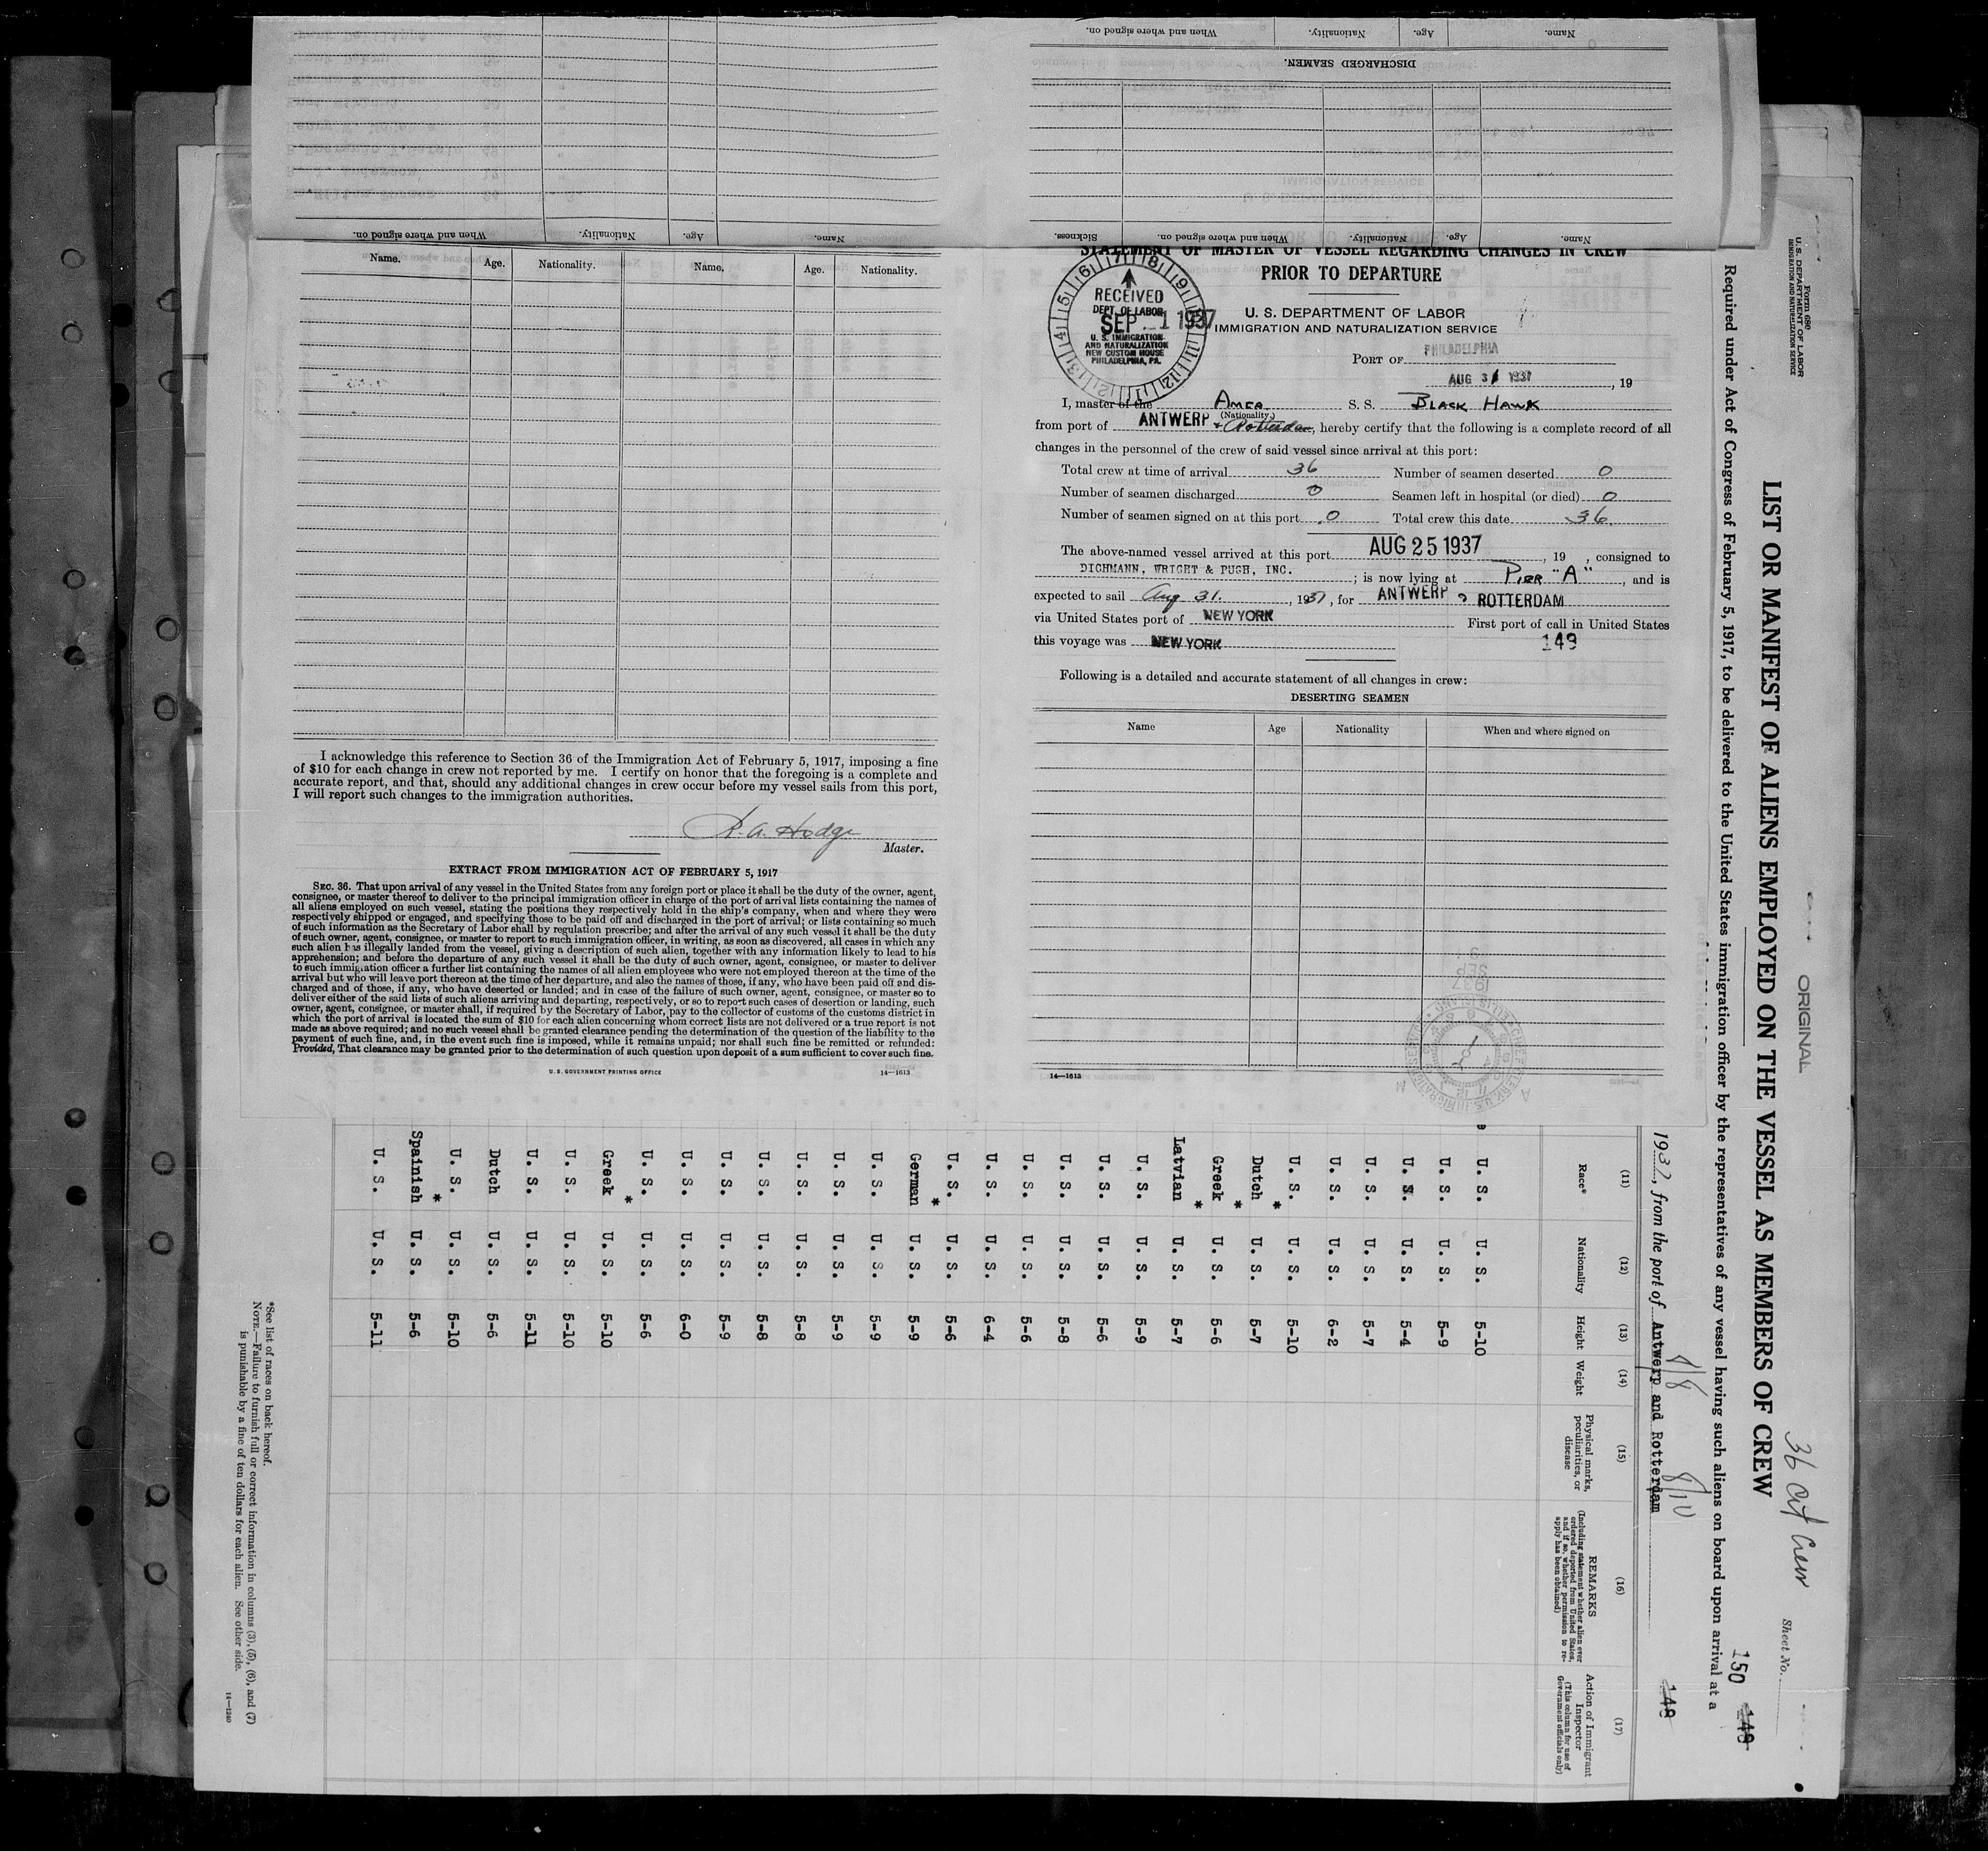 When and where signed on.
Nationality.
Age.
Name.
DISCHARGED SEAMEN.
When and where signed on.
Nationality.
Age.
Name.
Sickness.
When and where signed on.
Nationality.
Age.
Name.
Name. Age. Nationality. Name. Age. Nationality.
I acknowledge this reference to Section 36 of the Immigration Act of February 5, 1917, imposing a fine
of $10 for each change in crew not reported by me. I certify on honor that the foregoing is a complete and
accurate report, and that, should any additional changes in crew occur before my vessel sails from this port,
I will report such changes to the immigration authorities.
R. A. Hodge
Master.
EXTRACT FROM IMMIGRATION ACT OF FEBRUARY 5, 1917
SEC. 36. That upon arrival of any vessel in the United States from any foreign port or place it shall be the duty of the owner, agent,
consignee, or master thereof to deliver to the principal immigration officer in charge of the port of arrival lists containing the names of
all aliens employed on such vessel, stating the positions they respectively hold in the ship's company, when and where they were
respectively shipped or engaged, and specifying those to be paid off and discharged in the port of arrival; or lists containing so much
of such information as the Secretary of Labor shall by regulation prescribe; and after the arrival of any such vessel it shall be the duty
of such owner, agent, consignee, or master to report to such immigration officer, in writing, as soon as discovered, all cases in which any
such alien has illegally landed from the vessel, giving a description of such alien, together with any information likely to lead to his
apprehension; and before the departure of any such vessel it shall be the duty of such owner, agent, consignee, or master to deliver
to such immigration officer a further list containing the names of all alien employees who were not employed thereon at the time of the
arrival but who will leave port thereon at the time of her departure, and also the names of those, if any, who have been paid off and dis-
charged and of those, if any, who have deserted or landed; and in case of the failure of such owner, agent, consignee, or master so to
deliver either of the said lists of such aliens arriving and departing, respectively, or so to report such cases of desertion or landing, such
owner, agent, consignee, or master shall, if required by the Secretary of Labor, pay to the collector of customs of the customs district in
which the port of arrival is located the sum of $10 for each alien concerning whom correct lists are not delivered or a true report is not
made as above required; and no such vessel shall be granted clearance pending the determination of the question of the liability to the
payment of such fine, and, in the event such fine is imposed, while it remains unpaid; nor shall such fine be remitted or refunded:
Provided, That clearance may be granted prior to the determination of such question upon deposit of a sum sufficient to cover such fine.
U. S. GOVERNMENT PRINTING OFFICE 14—1613
STATEMENT OF MASTER OF VESSEL REGARDING CHANGES IN CREW
PRIOR TO DEPARTURE
RECEIVED
DEPT. OF LABOR
SEP -1 1937
U. S. IMMIGRATION
AND NATURALIZATION
NEW CUSTOM HOUSE
PHILADELPHIA, PA.
U. S. DEPARTMENT OF LABOR
IMMIGRATION AND NATURALIZATION SERVICE
PORT OF PHILADELPHIA
AUG 31 1937, 19
I, master of the Amer. S. S. BLACK HAWK
(Nationality)
from port of ANTWERP + Rotterdam, hereby certify that the following is a complete record of all
changes in the personnel of the crew of said vessel since arrival at this port:
Total crew at time of arrival 36 Number of seamen deserted 0
Number of seamen discharged 0 Seamen left in hospital (or died) 0
Number of seamen signed on at this port 0 Total crew this date 36
The above-named vessel arrived at this port AUG 25 1937, 19 , consigned to
DICHMANN, WRIGHT & PUGH, INC. ; is now lying at PIER "A", and is
expected to sail Aug 31., 1937, for ANTWERP & ROTTERDAM
via United States port of NEW YORK First port of call in United States
this voyage was NEW YORK 149
Following is a detailed and accurate statement of all changes in crew:
DESERTING SEAMEN
Name Age Nationality When and where signed on
14—1613
Form 680
U. S. DEPARTMENT OF LABOR
IMMIGRATION AND NATURALIZATION SERVICE
ORIGINAL
36 Cit Crew
Sheet No.
LIST OR MANIFEST OF ALIENS EMPLOYED ON THE VESSEL AS MEMBERS OF CREW
150 149
Required under Act of Congress of February 5, 1917, to be delivered to the United States immigration officer by the representatives of any vessel having such aliens on board upon arrival at a
8/8 8/10
1937, from the port of Antwerp and Rotterdam
148
(11) (12) (13) (14) (15) (16) (17)
Race* Nationality Height Weight Physical marks, peculiarities, or disease REMARKS (Including statement whether alien ever ordered deported from United States, and if so, whether permission to re-apply has been obtained) Action of Immigrant Inspector (This column for use of Government officials only)
U. S. U. S. 5-10
U. S. U. S. 5-9
U. S. U. S. 5-4
U. S. U. S. 5-7
U. S. U. S. 6-2
U. S. U. S. 5-10
Dutch * U. S. 5-7
Greek * U. S. 5-6
Latvian * U. S. 5-7
U. S. U. S. 5-9
U. S. U. S. 5-6
U. S. U. S. 5-8
U. S. U. S. 5-6
U. S. U. S. 6-4
U. S. U. S. 5-6
German * U. S. 5-9
U. S. U. S. 5-9
U. S. U. S. 5-9
U. S. U. S. 5-8
U. S. U. S. 5-8
U. S. U. S. 5-9
U. S. U. S. 6-0
U. S. U. S. 5-6
Greek * U. S. 5-10
U. S. U. S. 5-10
U. S. U. S. 5-11
Dutch U. S. 5-6
U. S. U. S. 5-10
Spainish * U. S. 5-6
U. S. U. S. 5-11
*See list of races on back hereof.
NOTE.—Failure to furnish full or correct information in columns (3), (5), (6), and (7)
is punishable by a fine of ten dollars for each alien. See other side.
14—1240